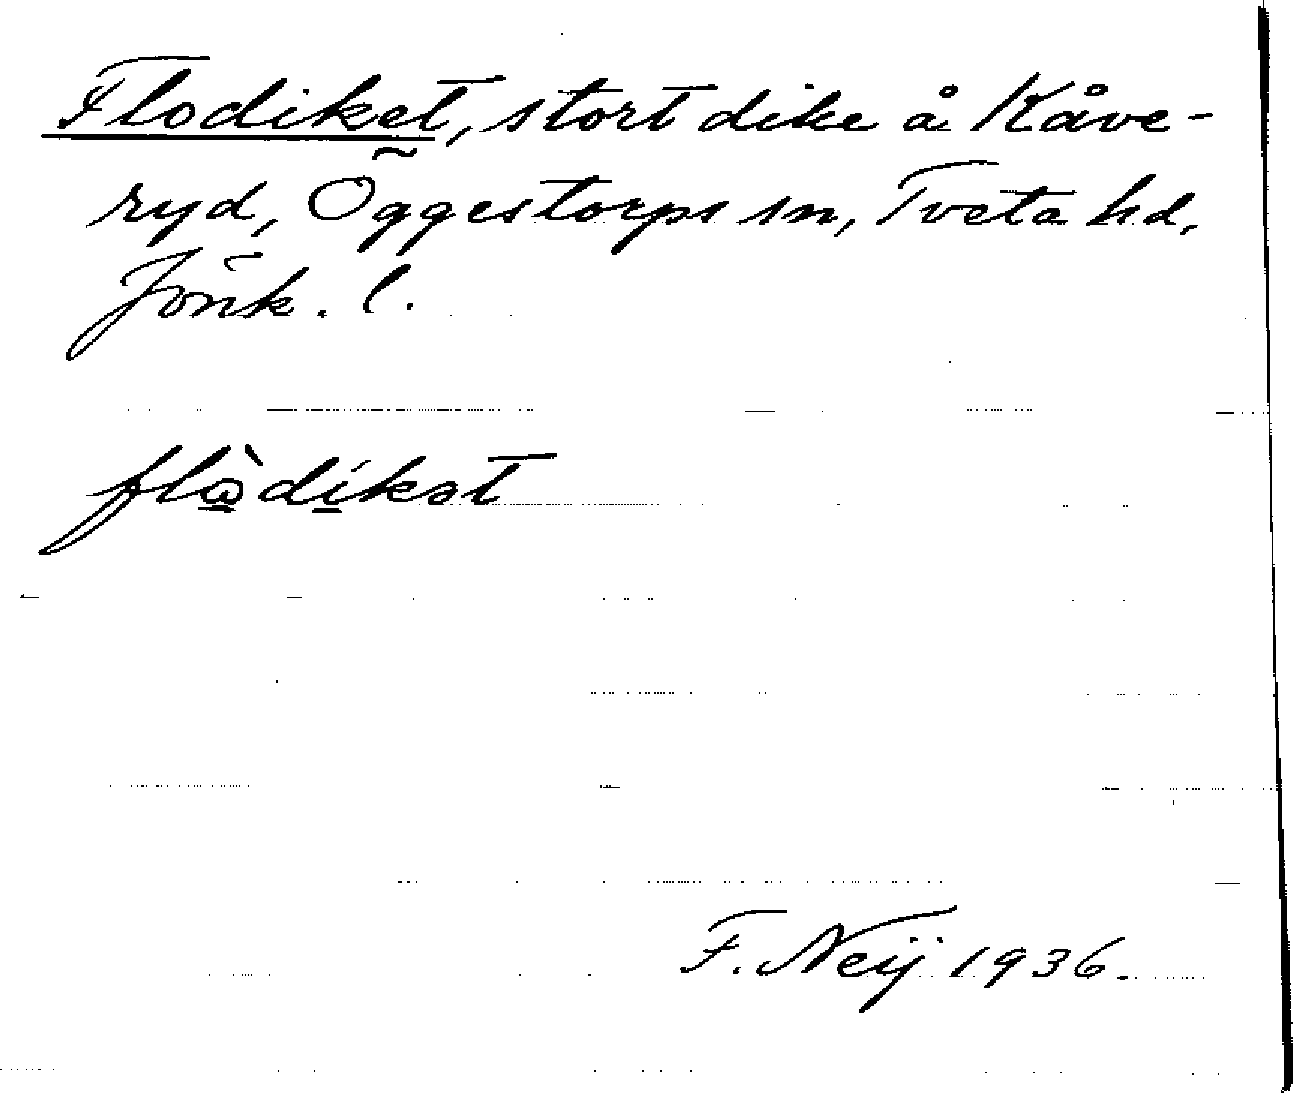 Flodiket, stort dike å Kåve-
ryd, Öggestorps sn, Tveta hd,
Jönk. l.
flòdíkət
F. Neij 1936.